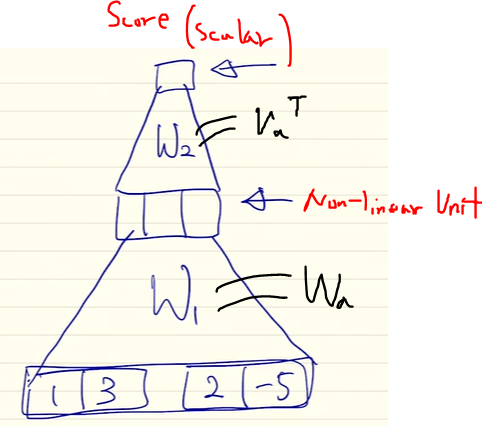 Score (scalar)
W₂ = Vₐᵀ
Non-linear Unit
W₁ = Wₐ
1 3 2 -5